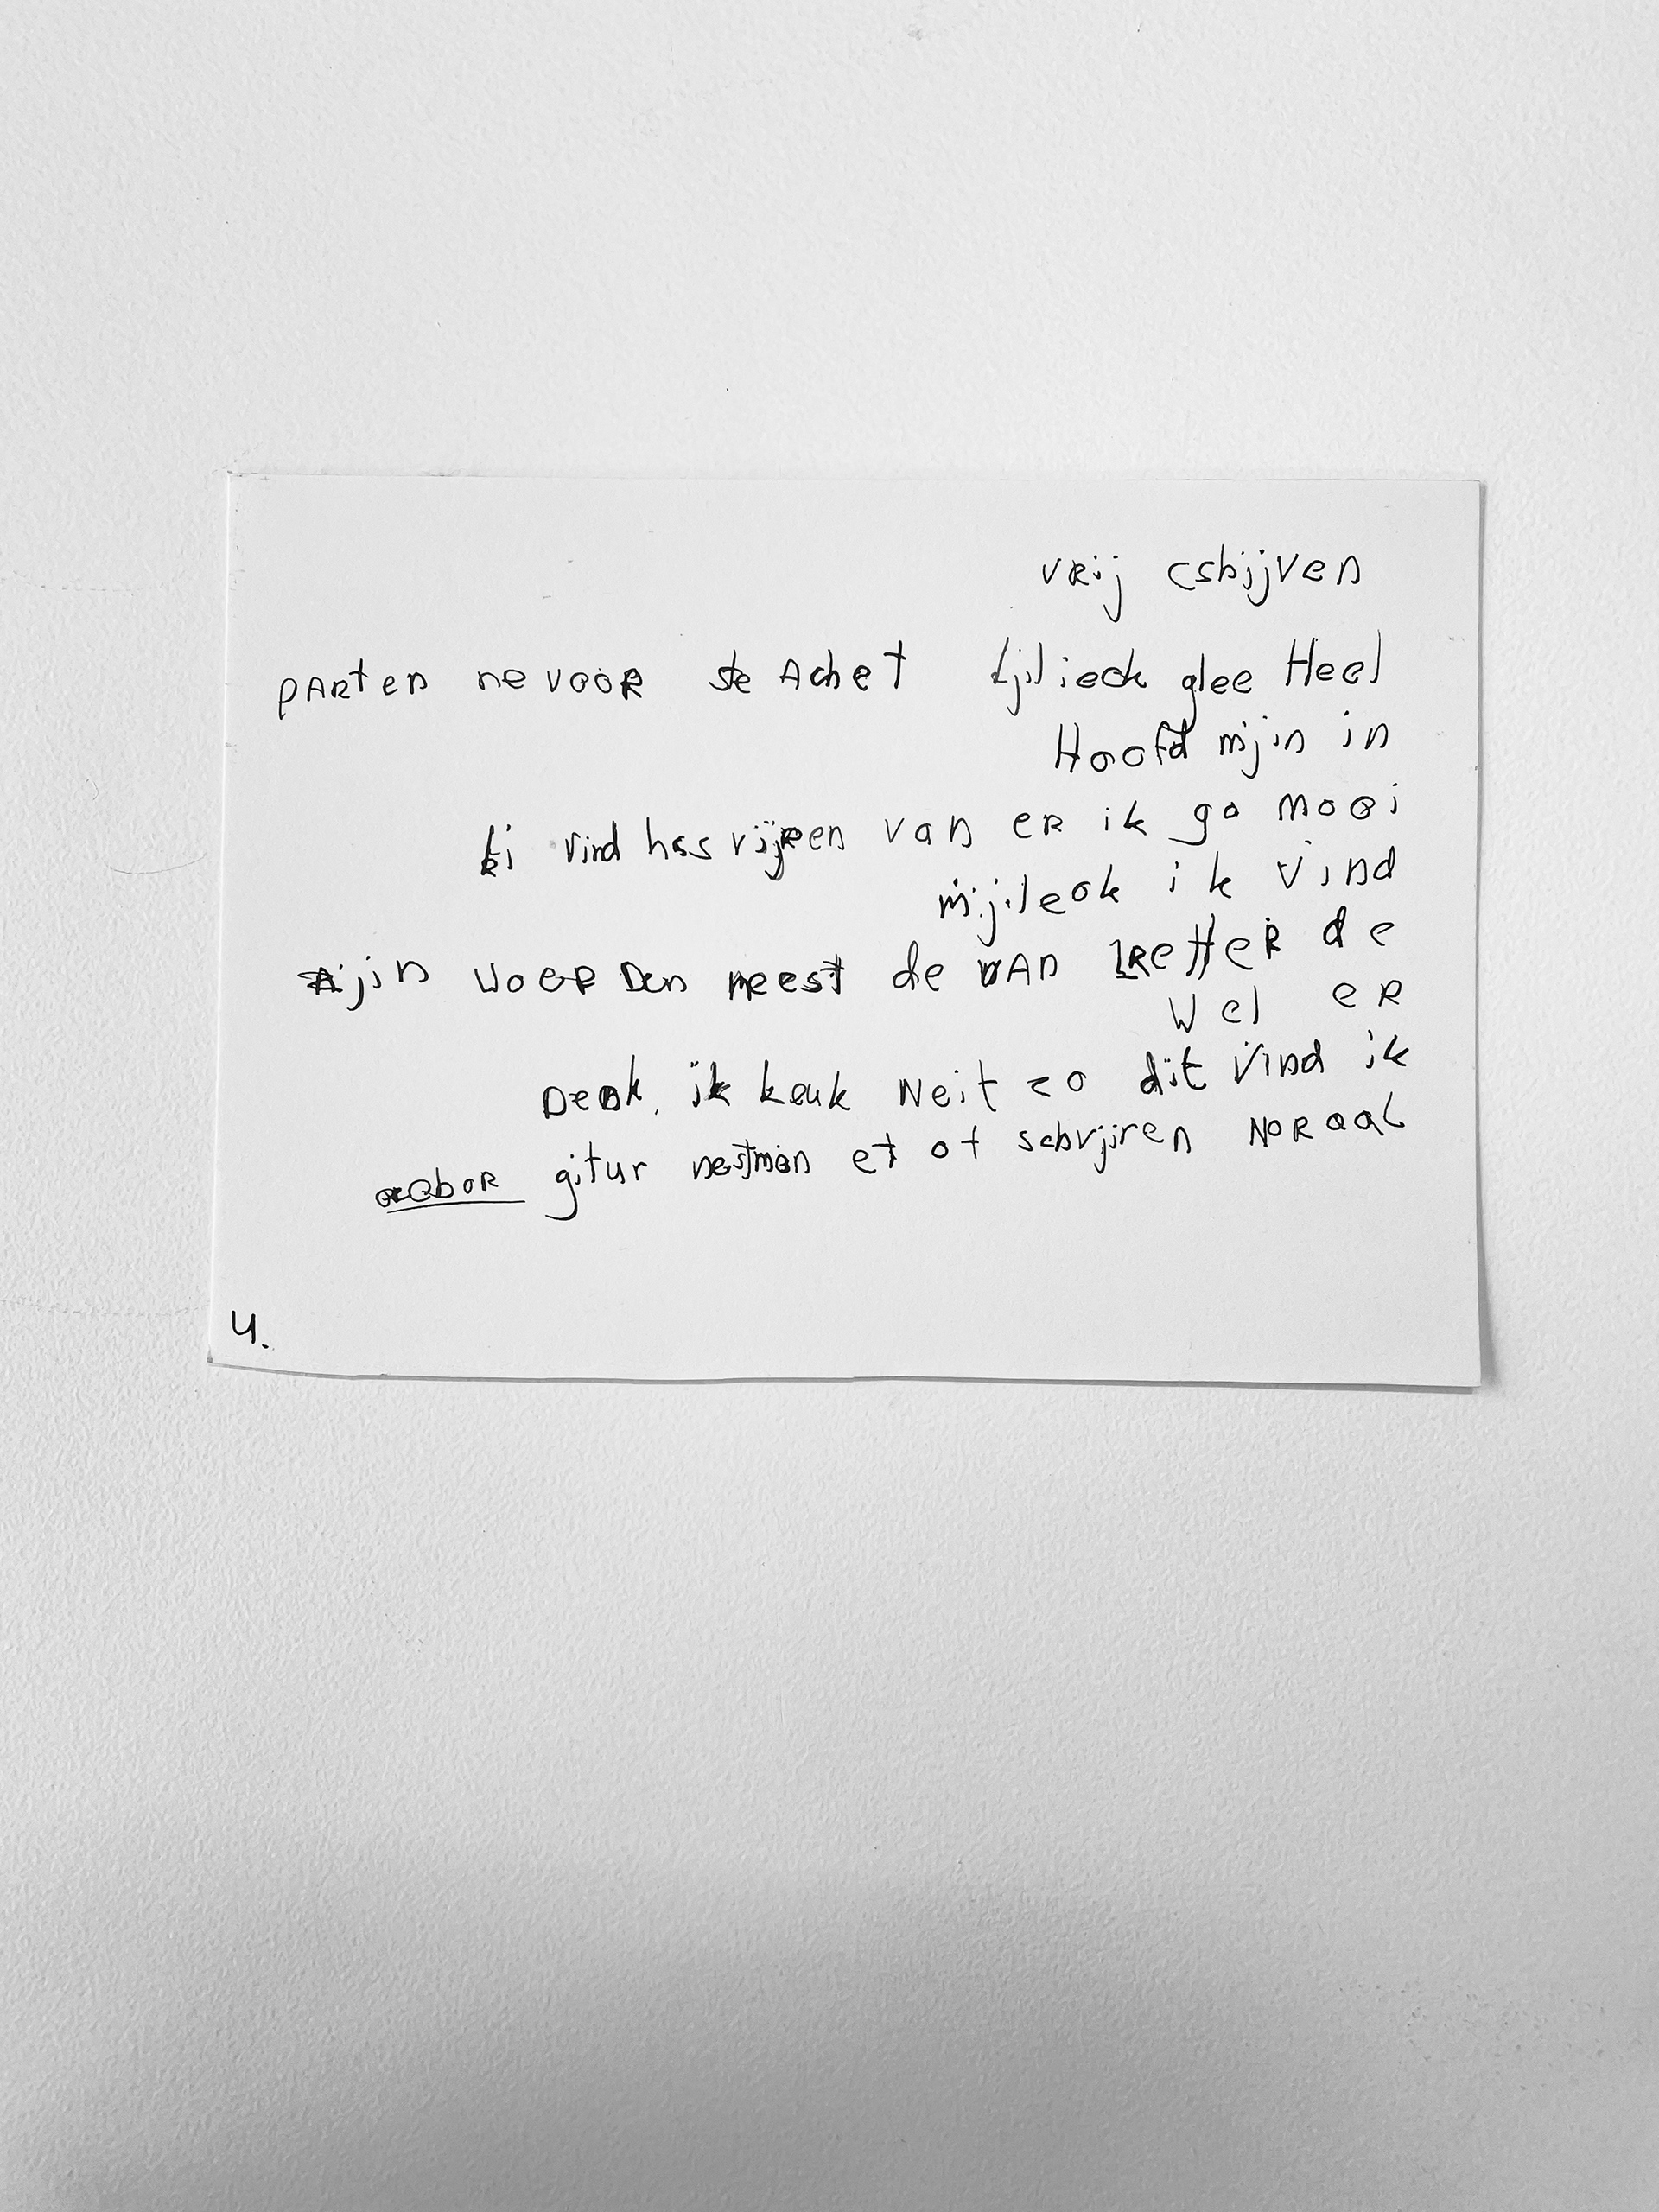 vrij csbijven
parten ne voor ste Achet tjilieck glee Heel
Hoofd mijn in
ki vind van er ik go mooi
mijileok ik vind
zijn woerden meest de van de
wel er
Denk, ik keuk Neit zo dit vind ik
gitur et ot schrjiren Noraal
4.